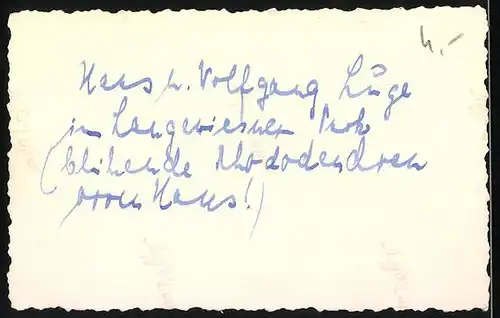 4.-
Haus u. Wolfgang Lüge
im Langewiesner Park
(blühende Rhododendren
vorm Haus!)